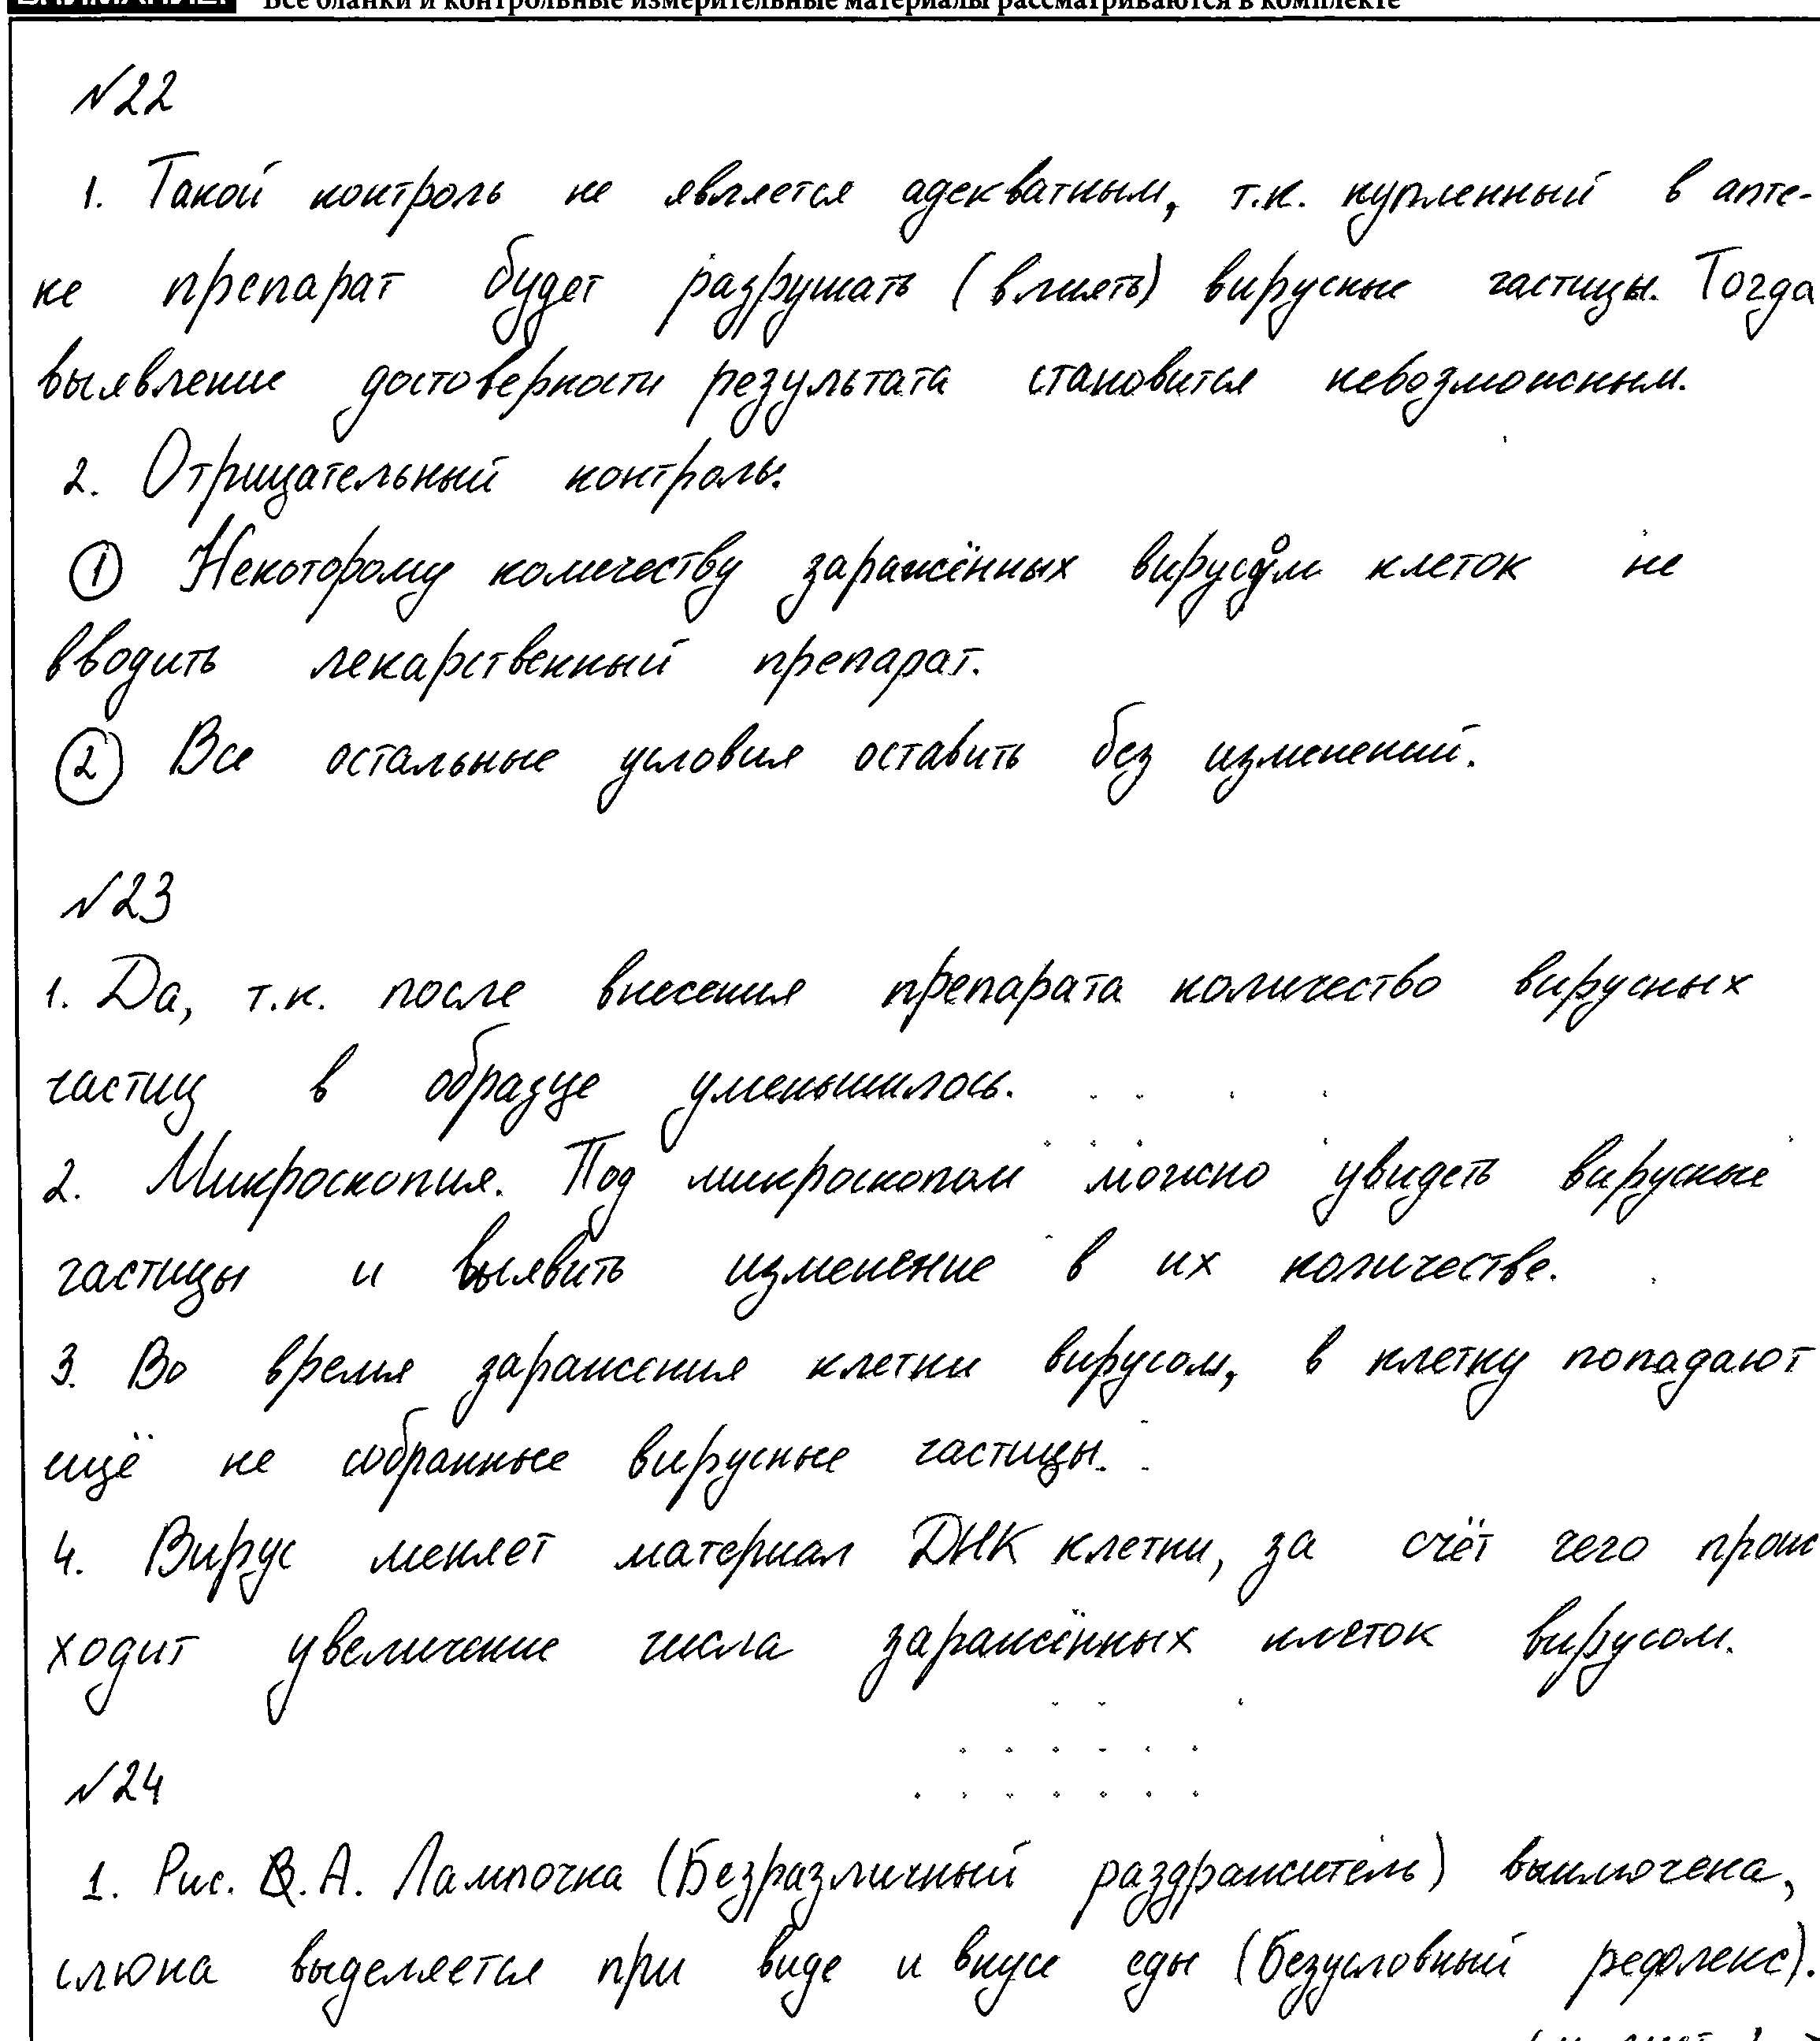 Все бланки и контрольные измерительные материалы рассматриваются в комплекте
№22
1. Такой контроль не является адекватным, т.к. купленный в апте-
ке препарат будет разрушать (влиять) вирусные частицы. Тогда
выявление достоверности результата становится невозможным.
2. Отрицательный контроль:
① Некоторому количеству заражённых вирусом клеток не
вводить лекарственный препарат.
② Все остальные условия оставить без изменений.
№23
1. Да, т.к. после внесения препарата количество вирусных
частиц в образце уменьшилось.
2. Микроскопия. Под микроскопом можно увидеть вирусные
частицы и выявить изменение в их количестве.
3. Во время заражения клетки вирусом, в клетку попадают
ещё не собранные вирусные частицы.
4. Вирус меняет материал ДНК клетки, за счёт чего проис
ходит увеличение числа заражённых клеток вирусом.
№24
1. Рис. А. Лампочка (Безразличный раздражитель) выключена,
слюна выделяется при виде и вкусе еды (безусловный рефлекс).